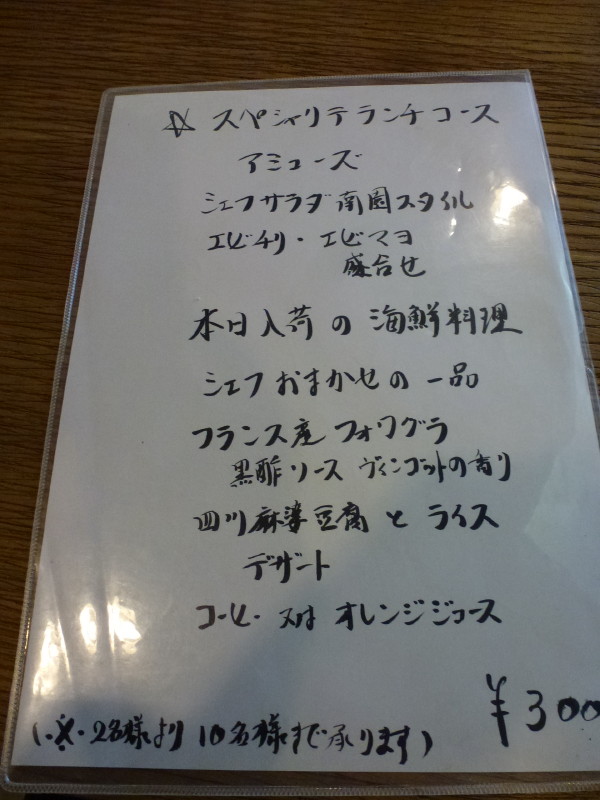 ☆ スペシャリテランチコース
アミューズ
シェフサラダ南国スタイル
エビチリ・エビマヨ
盛合せ
本日入荷の海鮮料理
シェフおまかせの一品
フランス産フォワグラ
黒酢ソース ヴィンコットの香り
四川麻婆豆腐とライス
デザート
コーヒー又はオレンジジュース
¥300
(※2名様より10名様まで承ります)